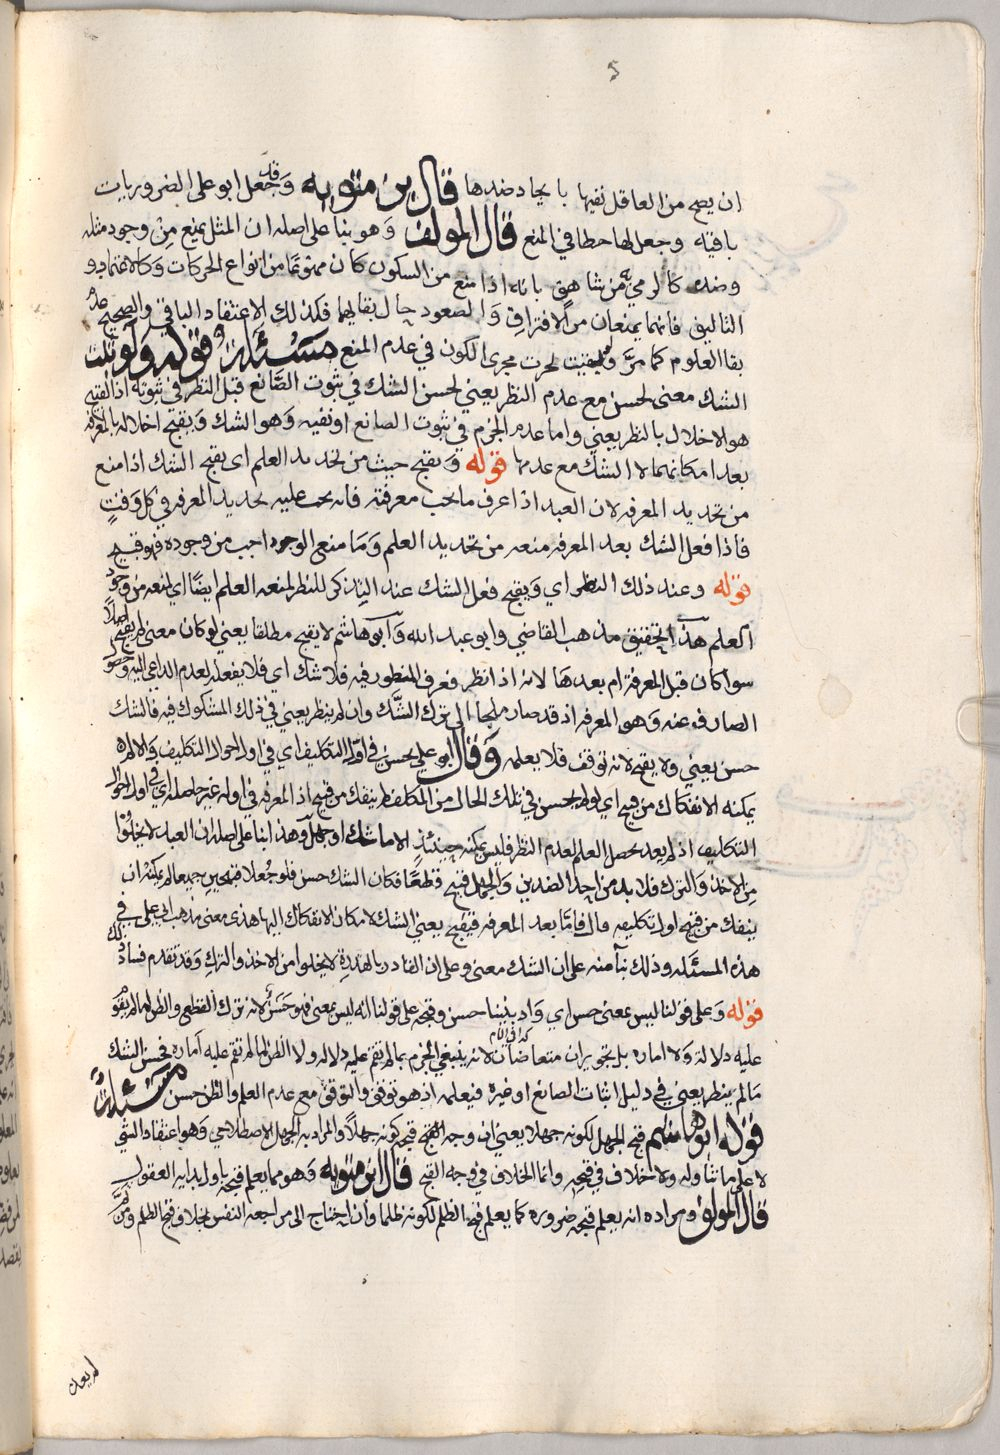 5
ان يصح من العاقل نفيها بايجاد ضدها قال بن متويه وقد جعل ابو علي الضروريات
باقيه وجعل لها حظا في المنع قال المولف وهو بنا على اصله ان المثل يمنع من وجود مثله
وضده كالرمي من شاهق بانه اذا منع من السكون كان ممنوعا من انواع الحركات وكالاعتماد و
التاليف فانهما يمنعان من الافتراق والصعود حال بقايهما فكذلك الاعتقاد الباقي والصحيح عدم
بقا العلوم كما مر ولو بقيت لجرت مجرى الكون في عدم المنع مسئلة قوله ولو ثبت
الشك معنى لحسن مع عدم النظر يعني لحسن الشك في ثبوت الصانع قبل النظر في ثبوته اذ القبيح
هو الاخلال بالنظر يعني واما عدم الجزم في ثبوت الصانع او نفيه وهو الشك ويقبح اخلاله بالمعرفة
بعد امكانهما لا الشك مع عدمها قوله ويقبح حيث من تجديد العلم اى يقبح الشك اذا منع
من تجديد المعرفه لان العبد اذا عرف ما يجب معرفته فانه يجب عليه تجديد المعرفه في كل وقت
فاذا فعل الشك بعد المعرفه منعه من تجديد العلم وما منع الوجود اجب من وجوده فهو قبيح
قوله وعند ذلك النظر اي ويقبح فعل الشك عند التذكر للنظر لمنعه العلم ايضا اي لمنعه من وجود
العلم هذا التحقيق مذهب القاضي وابو عبد الله وابو هاشم لا يقبح مطلقا يعني لو كان معنى لم يقبح اصلا
سوا كان قبل المعرفة ام بعدها لانه اذا نظر فعرف المنظور فيه فلا شك اي فلا يفعله لعدم الداعي اليه وحصول
الصارف عنه وهو المعرفه اذ قد صار ملجا الى ترك الشك وان لم ينظر يعني في ذلك المشكوك فيه فالشك
حسن يعني ولا يقبح لانه توقف فلا يعلمه وقال ابو علي يحسن في اول التكليف اي في اول احوال التكليف والا لم
يمكنه الانفكاك من قبيح اي لو لم يحسن في تلك الحال من المكلف لم ينفك من قبيح اذ المعرفه في اوله غير حاصله اي في اول احوال
التكليف اذ لم يعد يحصل العلم لعدم النظر فليس يمكنه حينئذ الا ما شك او جهل وهذا بنا على اصله ان العبد لا يخلوا
من الاخذ والترك فلا بد من احد الضدين والجهل قبيح قطعا فكان الشك حسن فلو جعلا قبيحين جميعا لم يمكنه ان
ينفك من قبيح اول تكليفه قال فاما بعد المعرفه فيقبح يعني الشك لامكان الانفكاك اليها هذى معنى مذهب ابي علي في
هذه المسئله وذلك بنا منه على ان الشك معنى وعلى ان القادر بالقدرة لا يخلوا من الاخذ والترك وقد تقدم فساد ذلك
قوله وعلى قولنا ليس بمعنى حسن اي واذ بينا حسن وقبحه على قولنا انه ليس بمعنى فهو حسن لانه ترك القطع والظن لما لم يقم
كذا في الام
عليه دلالة ولا اماره بل تجويزان متعاضدان لانه ينبغي الجزم بما لم تقم عليه دلاله ولا الظن لما لم تقم عليه اماره فحسن الشك
ما لم ينظر يعني في دليل اثبات الصانع او غيره فيعلمه اذ هو توقف والتوقف مع عدم العلم والظن حسن مسئلة
قوله ابو هاشم قبح الجهل لكونه جهلا يعني ان وجه القبح فيه كونه جهلا والمراد به الجهل الاصطلاحي وهو اعتقاد الشي
لا على ما تناوله ولا خلاف في قبحه وانما الخلاف في وجه القبح قال ابن متويه وهو مما يعلم قبحه باول بدايه العقول
قال المولف ومراده انه يعلم قبحه ضروره كما يعلم قبح الظلم لكونه ظلما وان احتاج الى مراجعه النفس بخلاف قبح الظلم ومن ثم
لم يعد